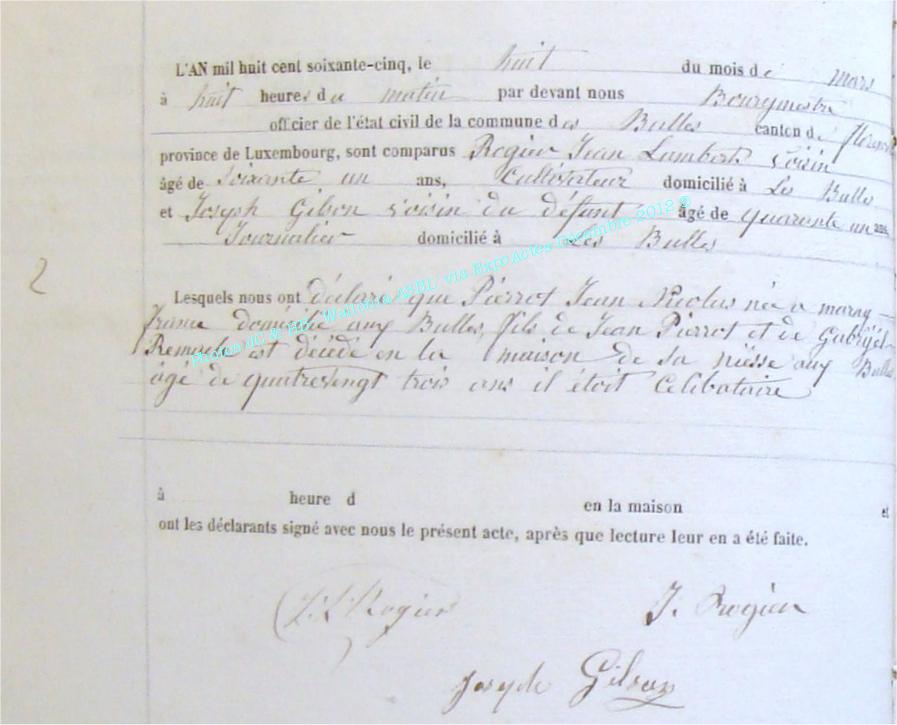 L'AN mil huit cent soixante-cinq, le huit du mois de mars
à huit heures du matin par devant nous Bourgmestre
officier de l'état civil de la commune des Bulles canton de
province de Luxembourg, sont comparus Rogier Jean Lambert voisin
âgé de soixante un ans, Cultivateur domicilié à Les Bulles
et Joseph Gilson voisin du défunt âgé de quarante un ans,
Journalier domicilié à Les Bulles
2
Lesquels nous ont déclaré que Pierrot Jean Nicolas née a
france domicilié aux Bulles, fils de Jean Pierrot et de
est décédé en la maison de sa niésse aux Bulles
âgé de quatrevingt trois ans il étoit Celibataire
à heure d en la maison et
ont les déclarants signé avec nous le présent acte, après que lecture leur en a été faite.
J. L. Rogier J. Rogier
Joseph Gilson
Photos JG de Gen. Wallonie ASBL via ExpoActes Décembre 2012 ®